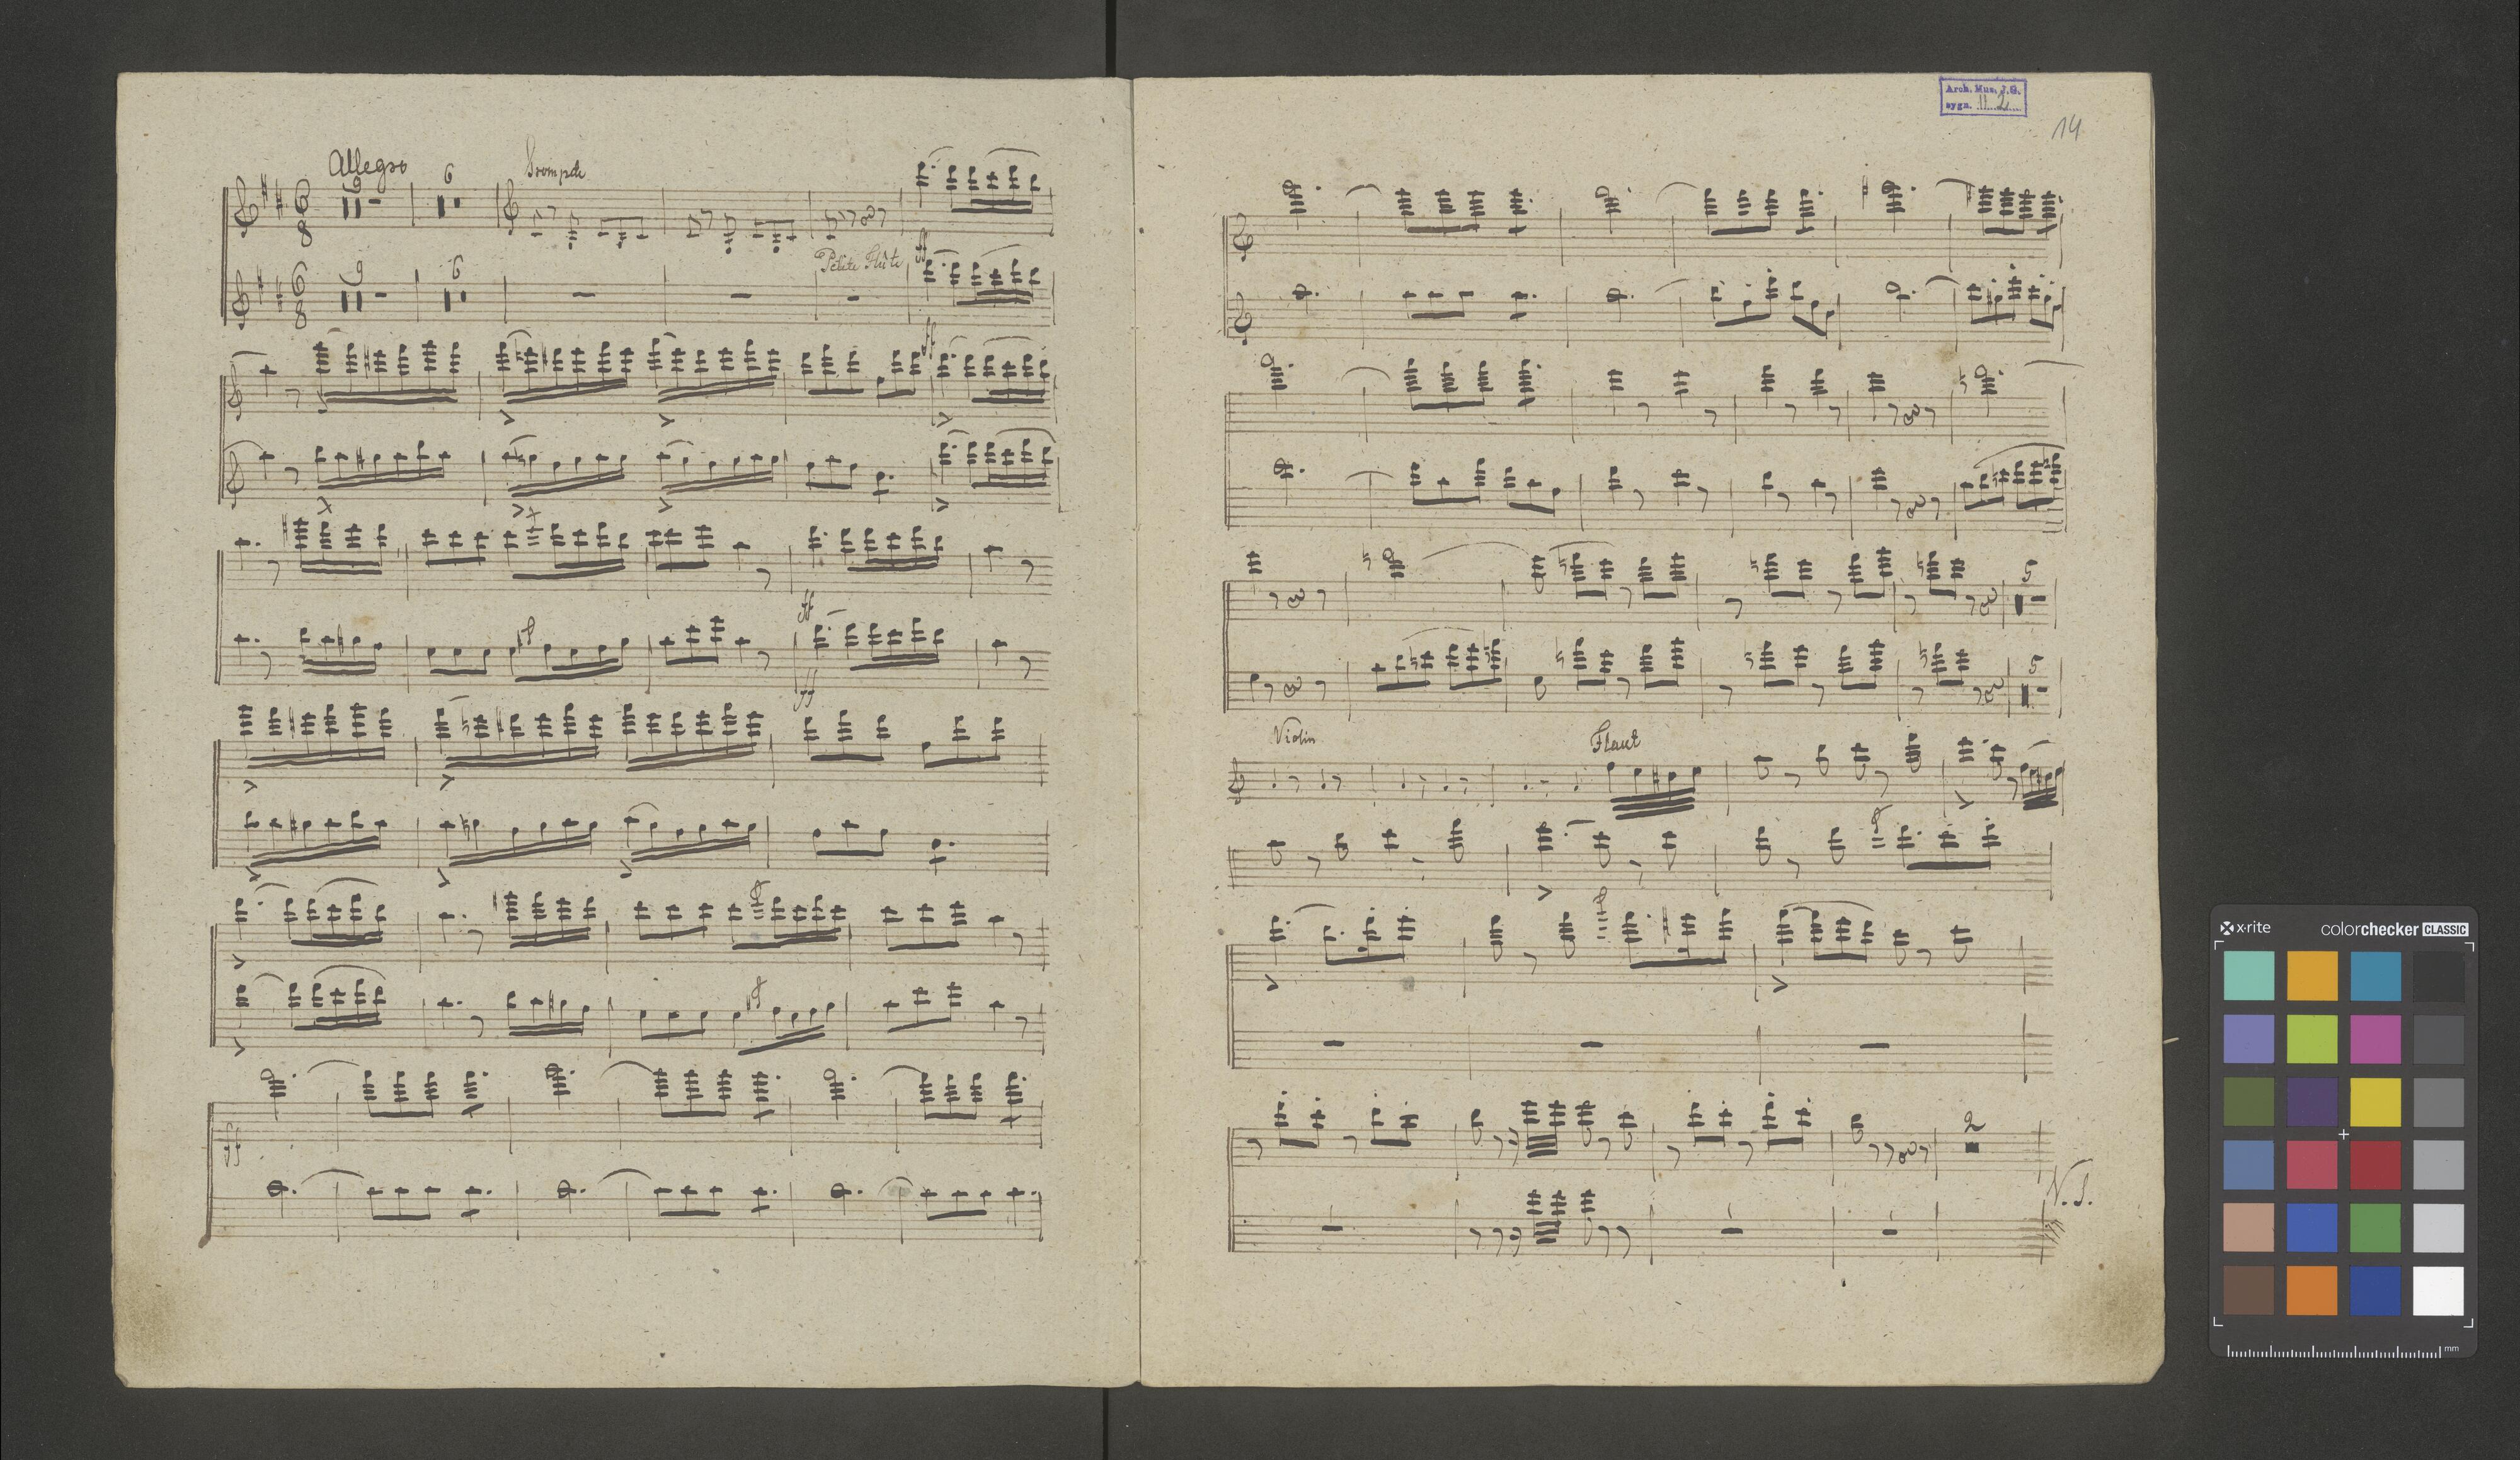 Allegro
9 6 Trompete
6
8
ff
9 6 Petite Flûte
6
8
ff
ff
ff
ff
Arch. Mus. J.G.
sygn. II 2
14
5
5
Violin Flaut
2
V. S.
x-rite colorchecker CLASSIC
mm